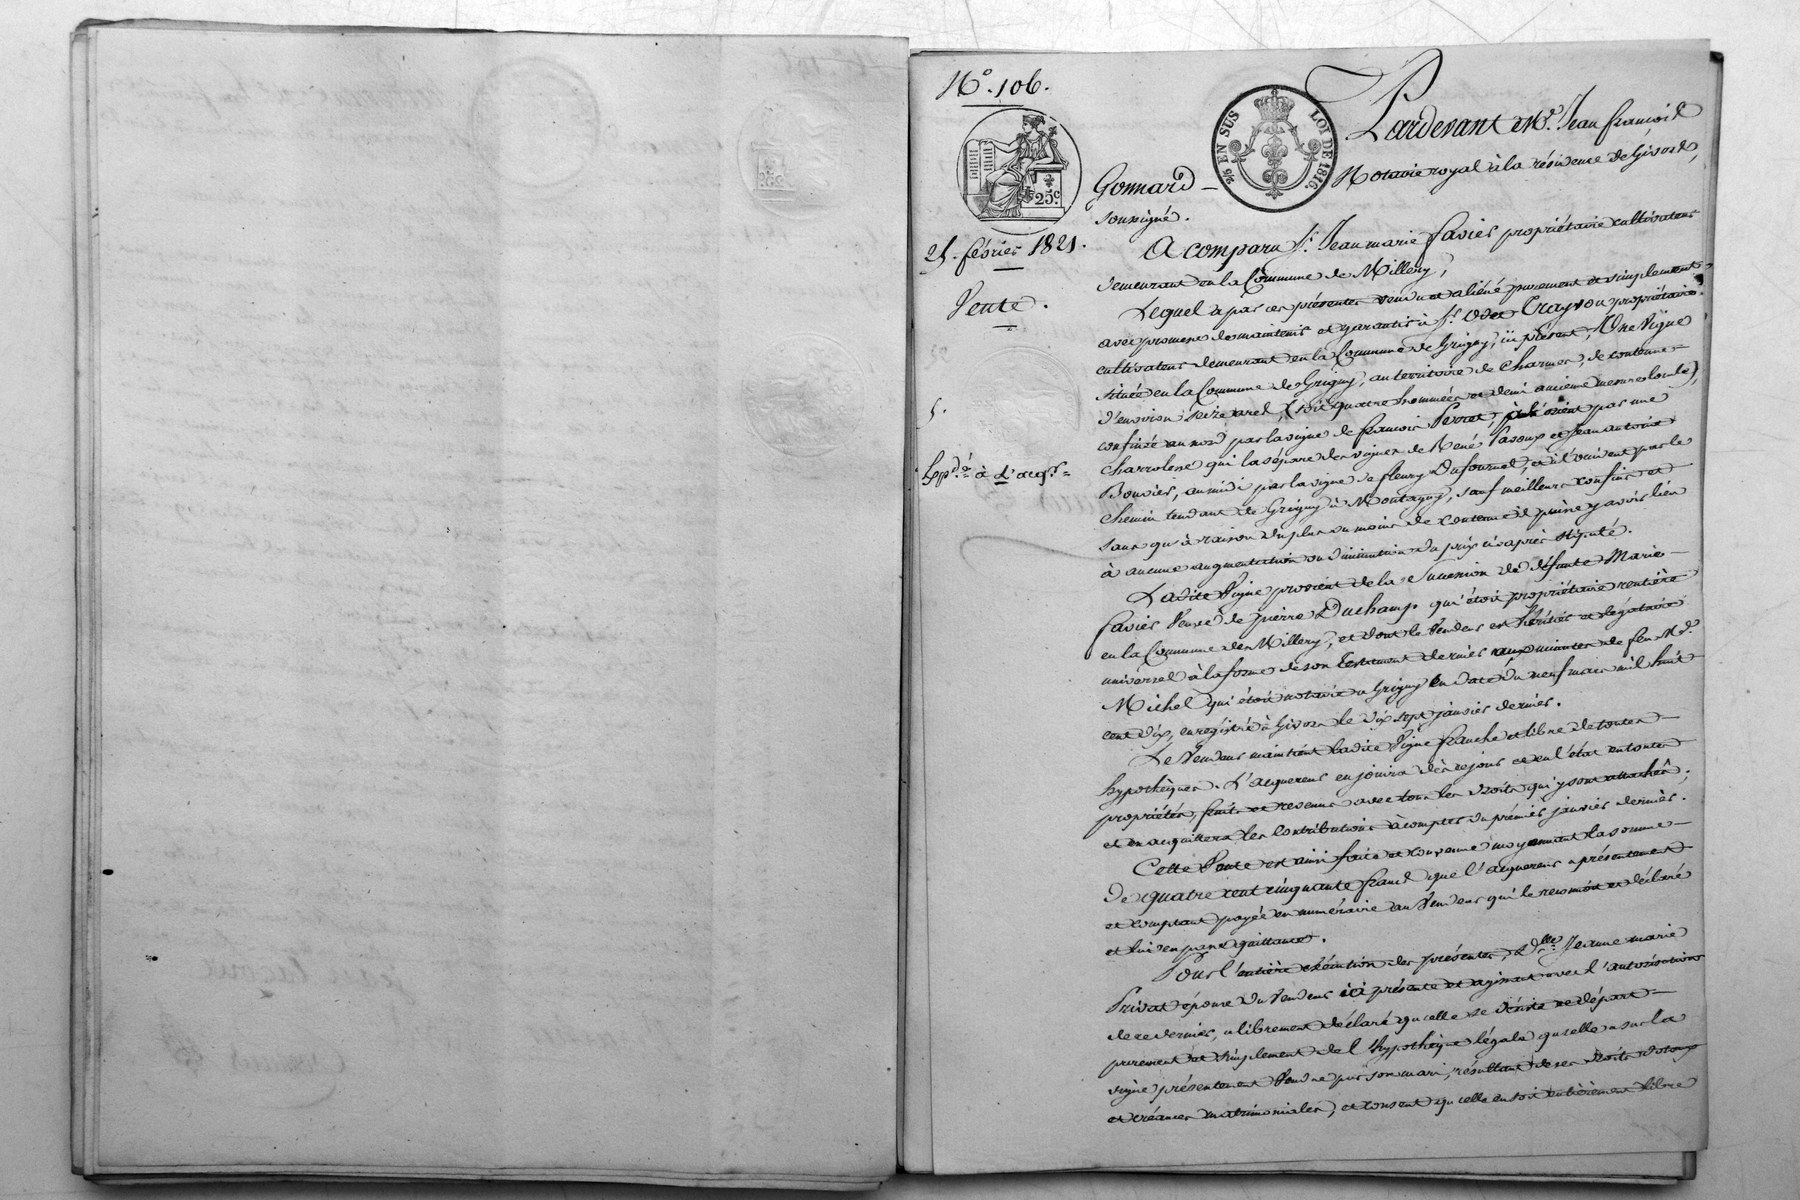 N.º 106.
25.c
¼ EN SUS LOI DE 1816.
Pardevant M.e Jean françois
Gonnard – Notaire royal à la résidence de Givors,
soussigné.
25. février 1821.
Vente.
5.
Exp.d.é à l'acq.r =
A comparu S.r Jean marie favier propriétaire cultivateur
demeurant en la Commune de Millery,
Lequel a par ces présentes vendu et aliéné purement et simplement
avec promesse de maintenir et garantir à S.r Odet Crayvou propriétaire
cultivateur demeurant en la Commune de Grigny, ici présent, Une vigne
située en la Commune de Grigny, au territoire de Charmes, de contenue
d'environ seize ares, (soit quatre hommées et demi ancienne mesure locale),
confinée au nord par la vigne de francois Perret, à l'orient par une
Charrolerie qui la sépare des vignes de René Pasoup et Jean antoine
Bouvier, au midi par la vigne de fleury Dufournel, et à l'occident par le
Chemin tendant de Grigny à Montagny, sauf meilleurs confins et
sans qu'à raison du plus ou moins de contenue il puisse y avoir lieu
à aucune augmentation ou diminution du prix ci après stipulé.
Ladite Vigne provient de la Succession de défunte Marie –
favier Veuve de pierre Duchamp qui étoit propriétaire rentière
en la Commune de Millery, et dont le Vendeur est héritier et légataire
universel à la forme de son testament dernier aux minutes de feu M.e
Michel qui étoit notaire a Grigny en date du neuf mars mil huit
cent dix, enregistré à Givors le dix sept janvier dernier.
Le Vendeur maintient ladite Vigne franche et libre de toutes –
hypothèques. L'acquereur en jouira dès ce jour et en l'état en toutes
propriétés, fruits et revenus avec tous les droits qui y sont attachés,
et en acquittera les Contributions à compter du premier janvier dernier.
Cette Vente est ainsi faite et convenue moyennant la somme –
de quatre cent cinquante francs que l'acquereur a présentement
et comptant payée en numéraire au Vendeur qui le reconnoit et déclare
et lui en passe quittance.
Pour l'entière exécution des présentes, D.lle Jeanne marie
Privat épouse du Vendeur ici présente et agissant avec l'autorisation
de ce dernier, a librement déclaré qu'elle se désiste et départ –
purement et simplement de l'hypothèque légale qu'elle a sur la
vigne présentement Vendue par son mari, résultant de ses droits dotaux
et créances matrimoniales, et consent qu'elle en soit entièrement libre